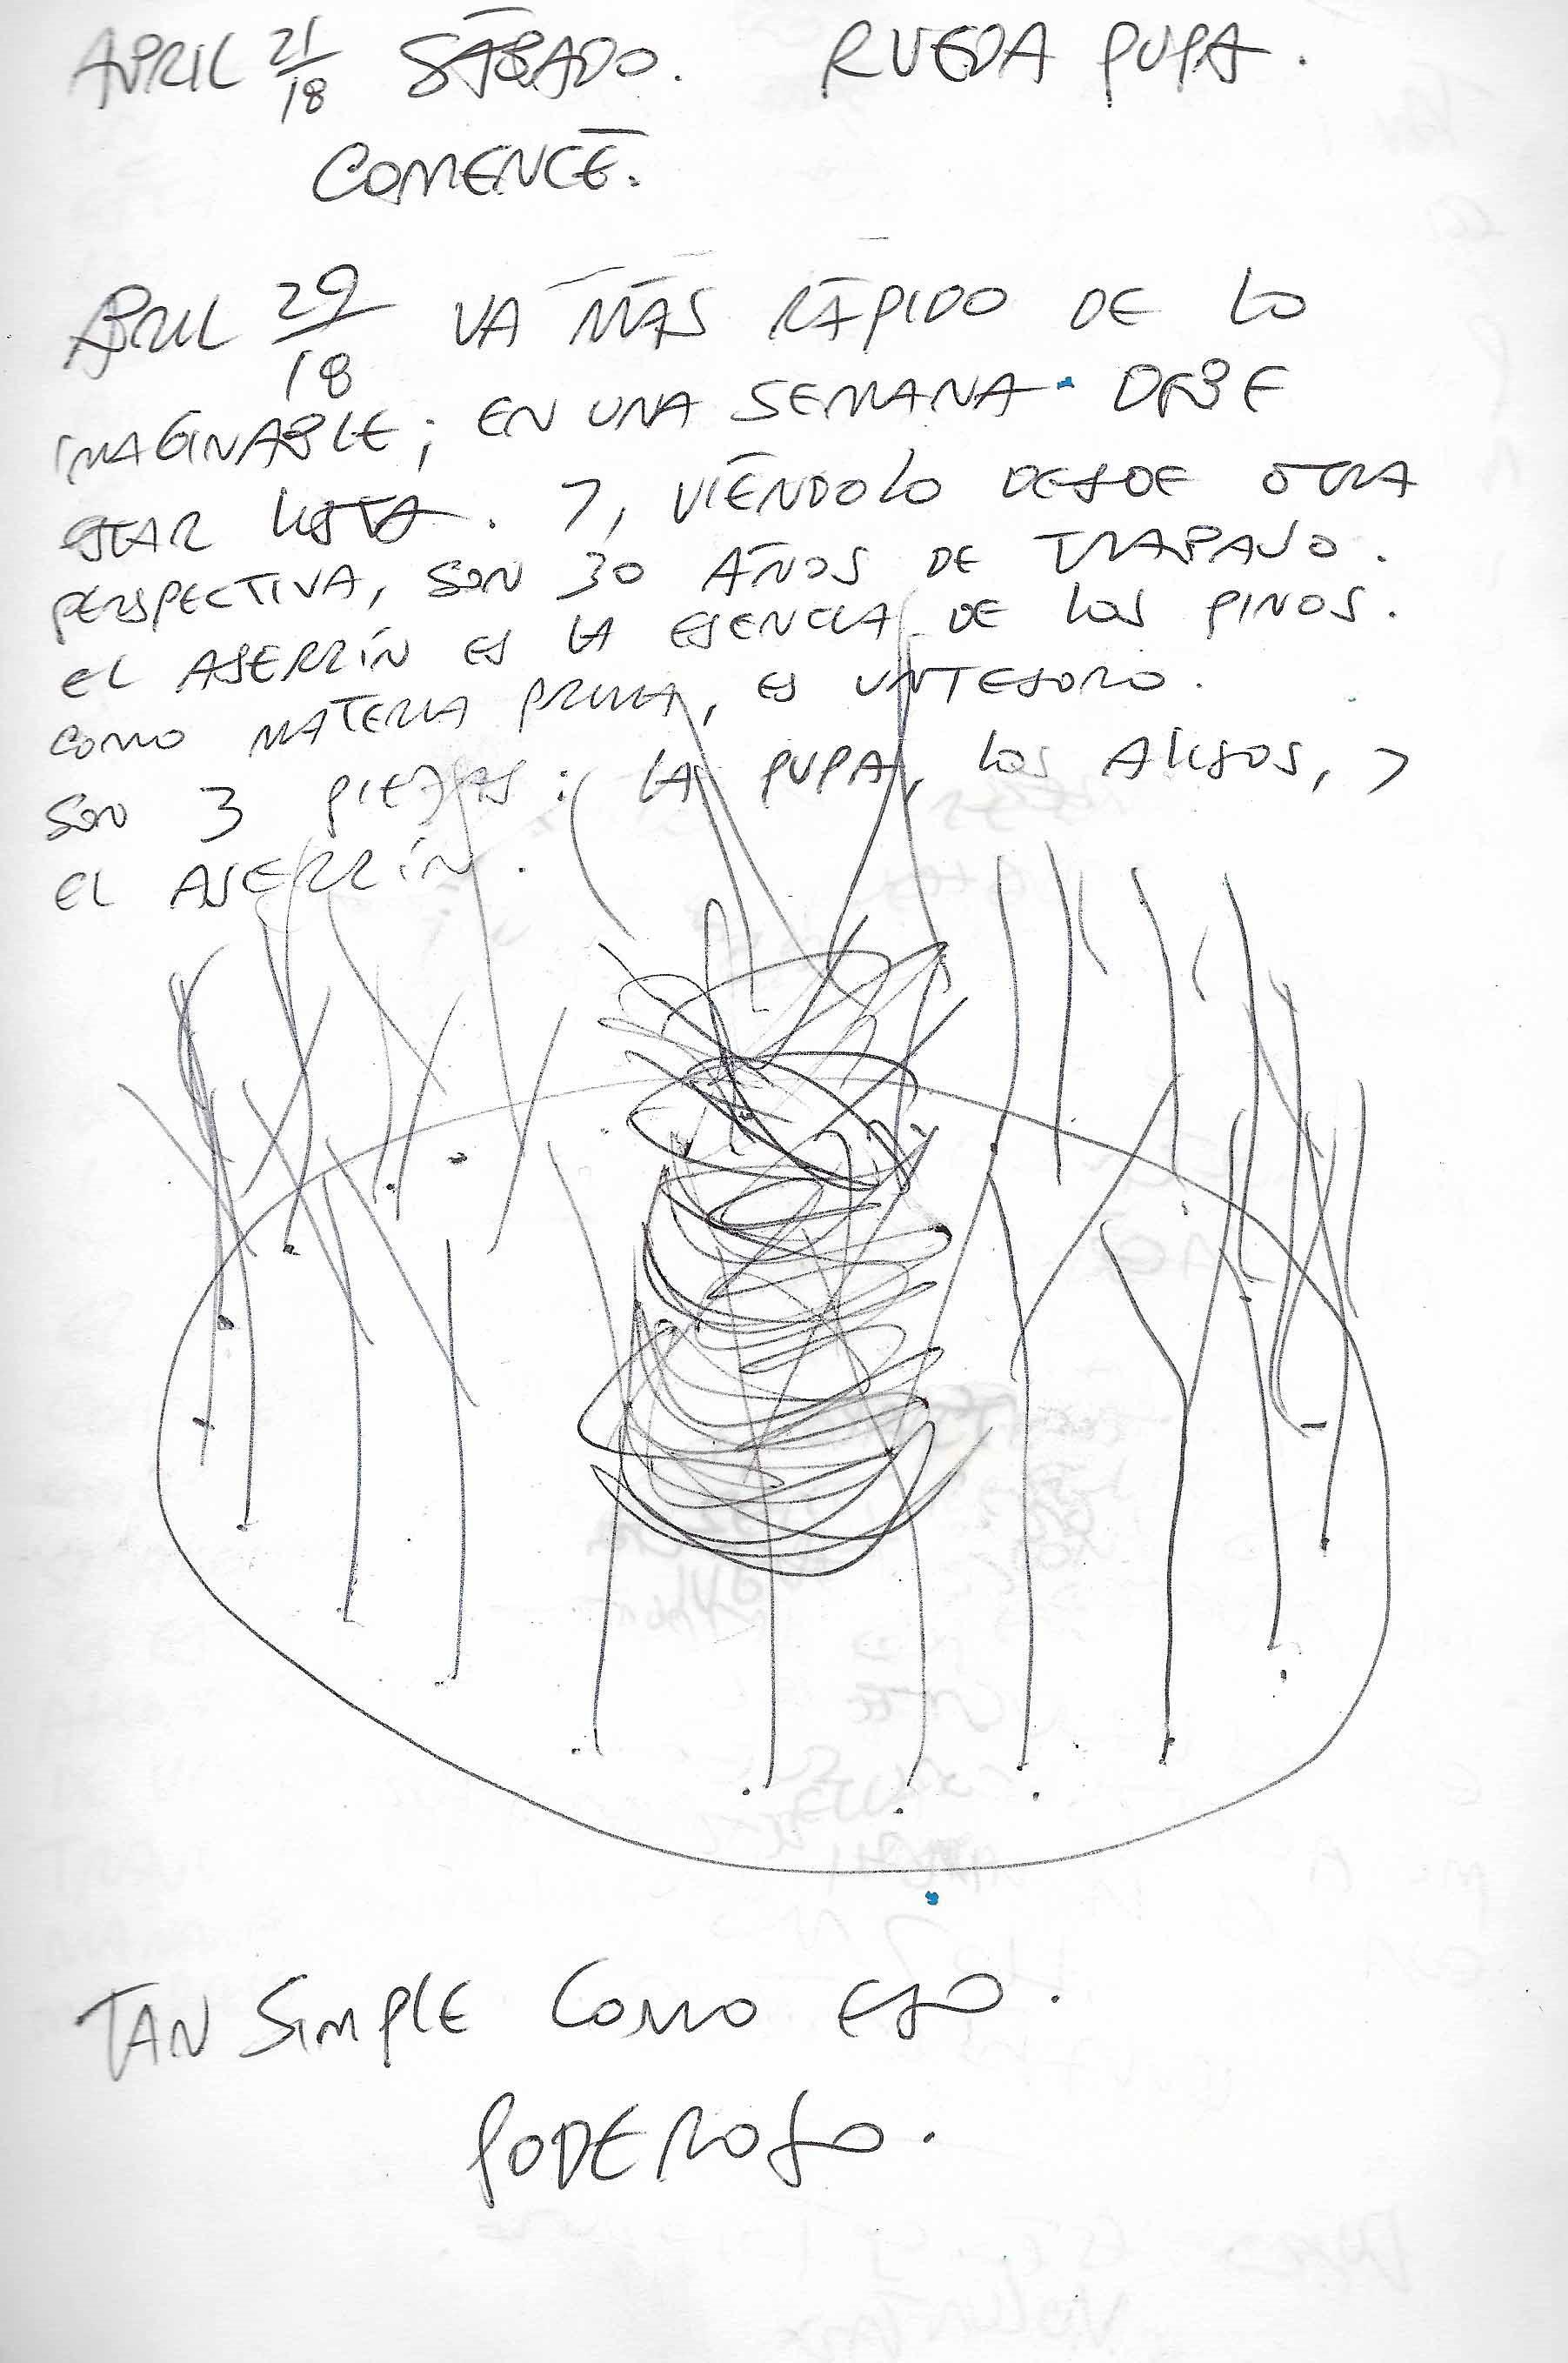 APRIL 21/18 SÁBADO. RUEDA PUPA.
COMENCÉ.
APRIL 29/18 VA MÁS RÁPIDO DE LO
IMAGINABLE; EN UNA SEMANA DEBE
ESTAR LISTA. Y, VIÉNDOLO DESDE OTRA
PERSPECTIVA, SON 30 AÑOS DE TRABAJO.
EL ASERRÍN ES LA ESENCIA DE LOS PINOS.
COMO MATERIA PRIMA, ES UN TESORO.
SON 3 PIEZAS: LA PUPA, LOS ALISOS, Y
EL ASERRÍN.
TAN SIMPLE COMO ESO.
PODEROSO.